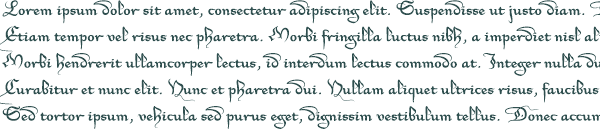 Lorem ipsum dolor sit amet, consectetur adipiscing elit. Suspendisse ut justo diam.
Etiam tempor vel risus nec pharetra. Morbi fringilla luctus nibh, a imperdiet nisl
Morbi hendrerit ullamcorper lectus, id interdum lectus commodo at. Integer nulla
Curabitur et nunc elit. Nunc et pharetra dui. Nullam aliquet ultrices risus, faucibus
Sed tortor ipsum, vehicula sed purus eget, dignissim vestibulum tellus. Donec